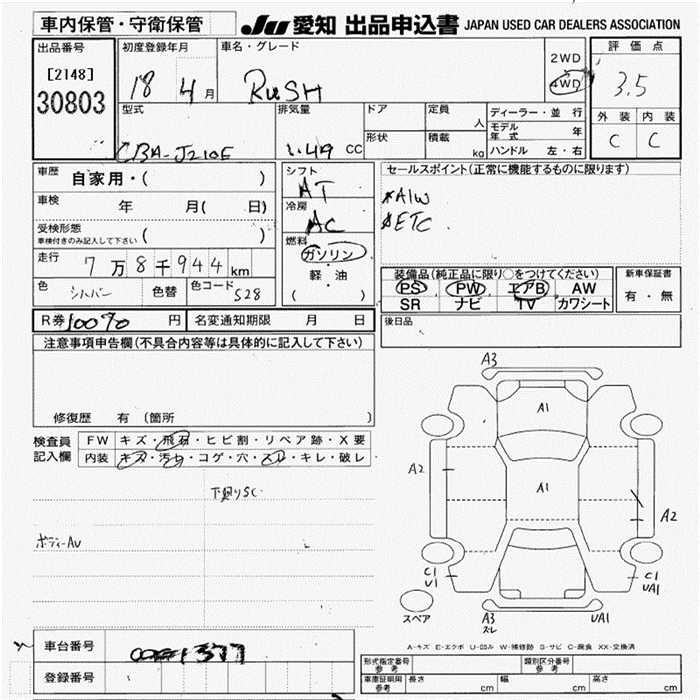 車内保管・守衛保管
JU 愛知 出品申込書 JAPAN USED CAR DEALERS ASSOCIATION
出品番号
[2148]
30803
初度登録年月
18 4 月
車名・グレード
RUSH
2WD
4WD
評価点
3.5
外装 内装
C C
型式
CBA-J210E
排気量
1.49 CC
ドア
形状
定員 人
積載 kg
ディーラー・並行
モデル年式 年
ハンドル 左・右
車歴 自家用・( )
車検 年 月( 日)
受検形態
車検付きのみ記入して下さい ( )
走行 7万8千944 km
色 シルバー 色替 色コード S28
シフト
AT
冷房
AC
燃料
ガソリン
軽・油
( )
セールスポイント(正常に機能するものに限ります)
AIW
ETC
装備品(純正品に限り○をつけてください)
PS PW エアB AW
SR ナビ TV カワシート
新車保証書
有・無
R券 10070 円 名変通知期限 月 日
後日品
注意事項申告欄(不具合内容等は具体的に記入して下さい)
修復歴 有 (箇所 )
検査員記入欄
FW キズ・飛石・ヒビ割・リペア跡・X要
内装 キズ・汚れ・コゲ・穴・スレ・キレ・破レ
下廻りSC
ボディーAU
A3
A1
A2
A1
A2
C1
U1
C1
UA1
スペア
A3
スレ
UA1
A-キズ E-エクボ U-凹み W-補修跡 S-サビ C-腐食 XX-交換済
車台番号 1377
登録番号
形式指定番号 参考
類別区分番号 参考
車庫証明用 参考 長さ cm 幅 cm 高さ cm